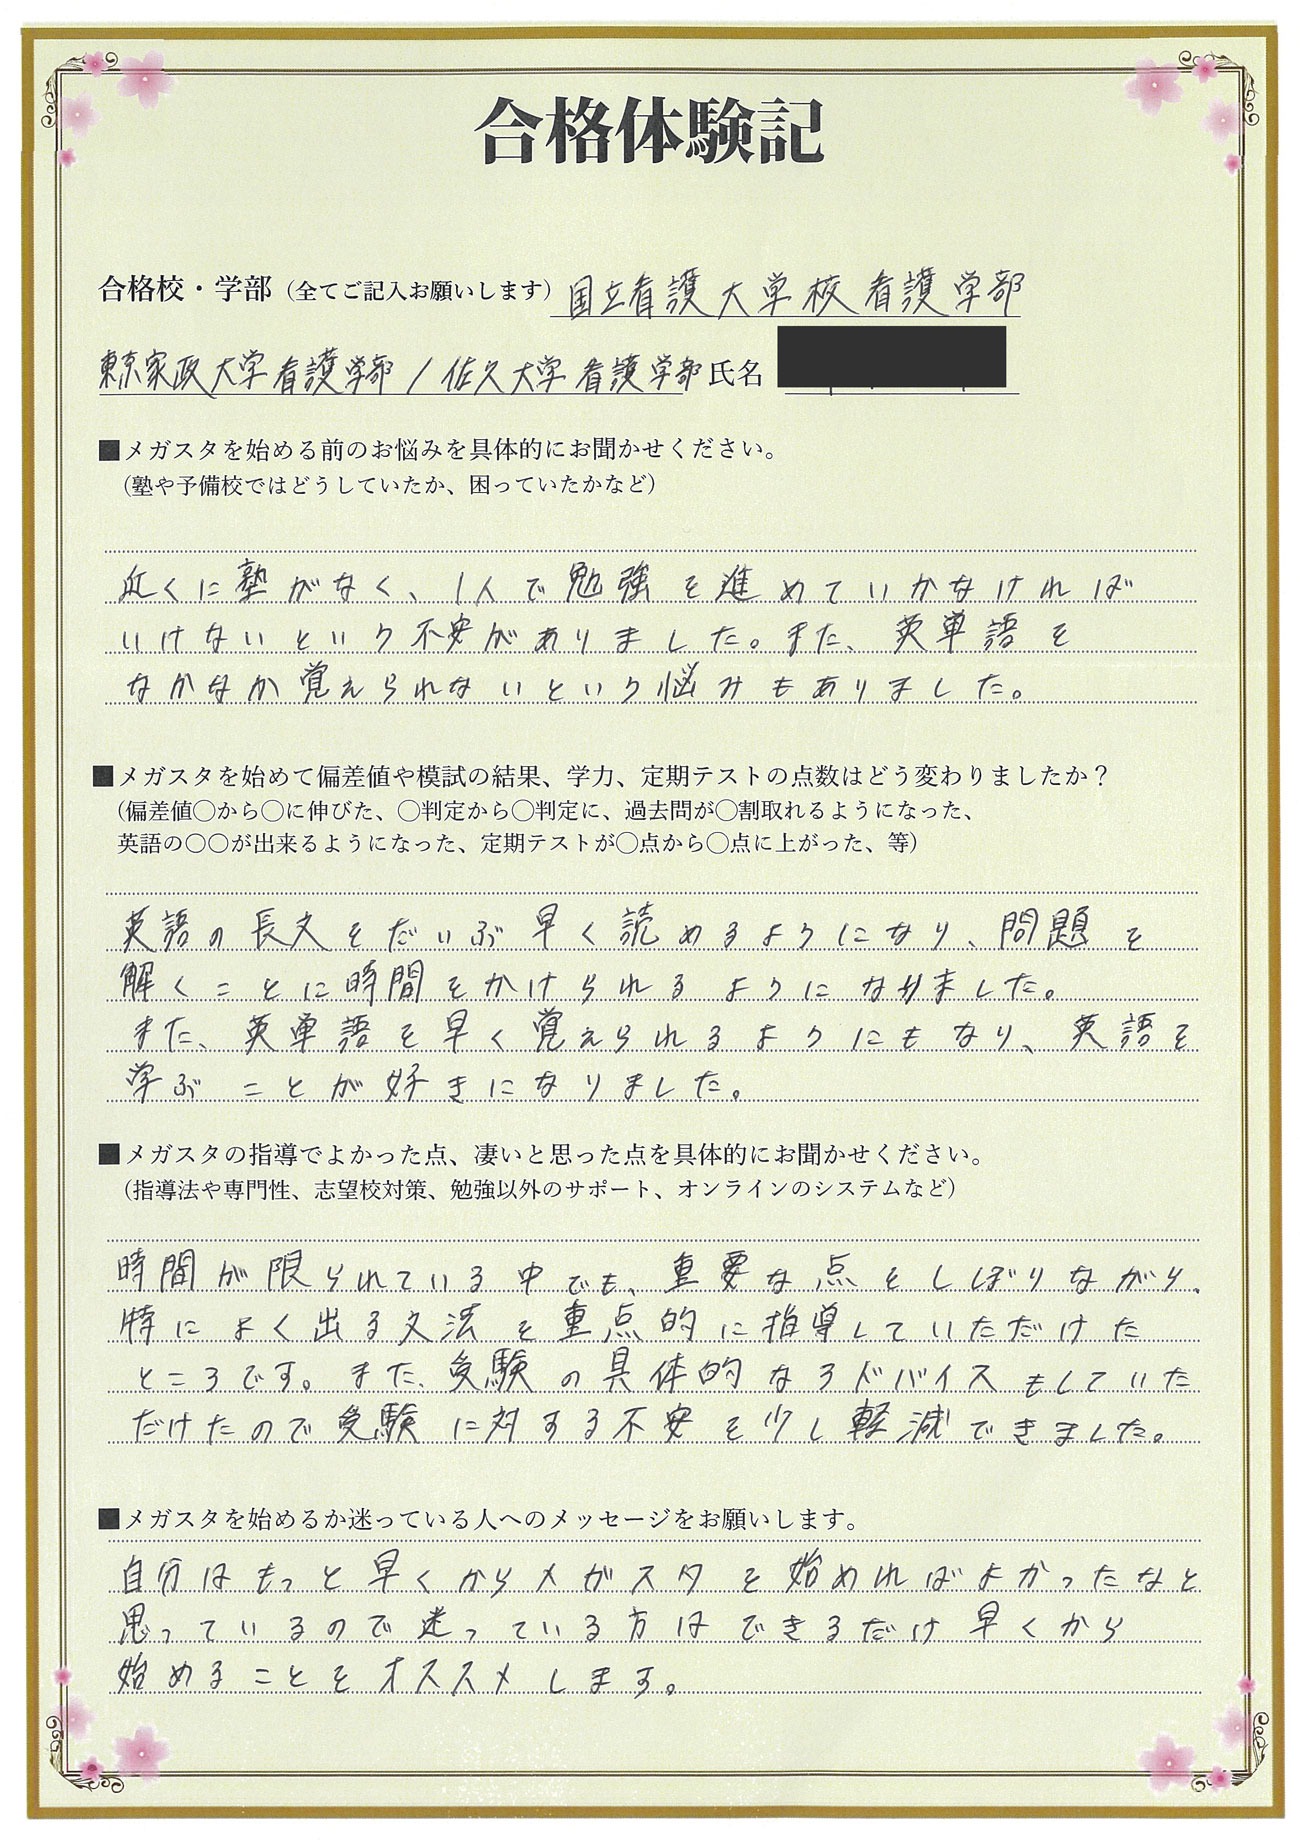 合格体験記
合格校・学部（全てご記入お願いします）国立看護大学校看護学部
東京家政大学看護学部/佐久大学看護学部 氏名
■メガスタを始める前のお悩みを具体的にお聞かせください。
（塾や予備校ではどうしていたか、困っていたかなど）
近くに塾がなく、1人で勉強を進めていかなければ
いけないという不安がありました。また、英単語を
なかなか覚えられないという悩みもありました。
■メガスタを始めて偏差値や模試の結果、学力、定期テストの点数はどう変わりましたか？
（偏差値〇から〇に伸びた、〇判定から〇判定に、過去問が〇割取れるようになった、
英語の〇〇が出来るようになった、定期テストが〇点から〇点に上がった、等）
英語の長文をだいぶ早く読めるようになり、問題を
解くことに時間をかけられるようになりました。
また、英単語を早く覚えられるようにもなり、英語を
学ぶことが好きになりました。
■メガスタの指導でよかった点、凄いと思った点を具体的にお聞かせください。
（指導法や専門性、志望校対策、勉強以外のサポート、オンラインのシステムなど）
時間が限られている中でも、重要な点をしぼりながら、
特によく出る文法を重点的に指導していただけた
ところです。また、受験の具体的なアドバイスもしていた
だけたので受験に対する不安を少し軽減できました。
■メガスタを始めるか迷っている人へのメッセージをお願いします。
自分はもっと早くからメガスタを始めればよかったなと
思っているので迷っている方はできるだけ早くから
始めることをオススメします。